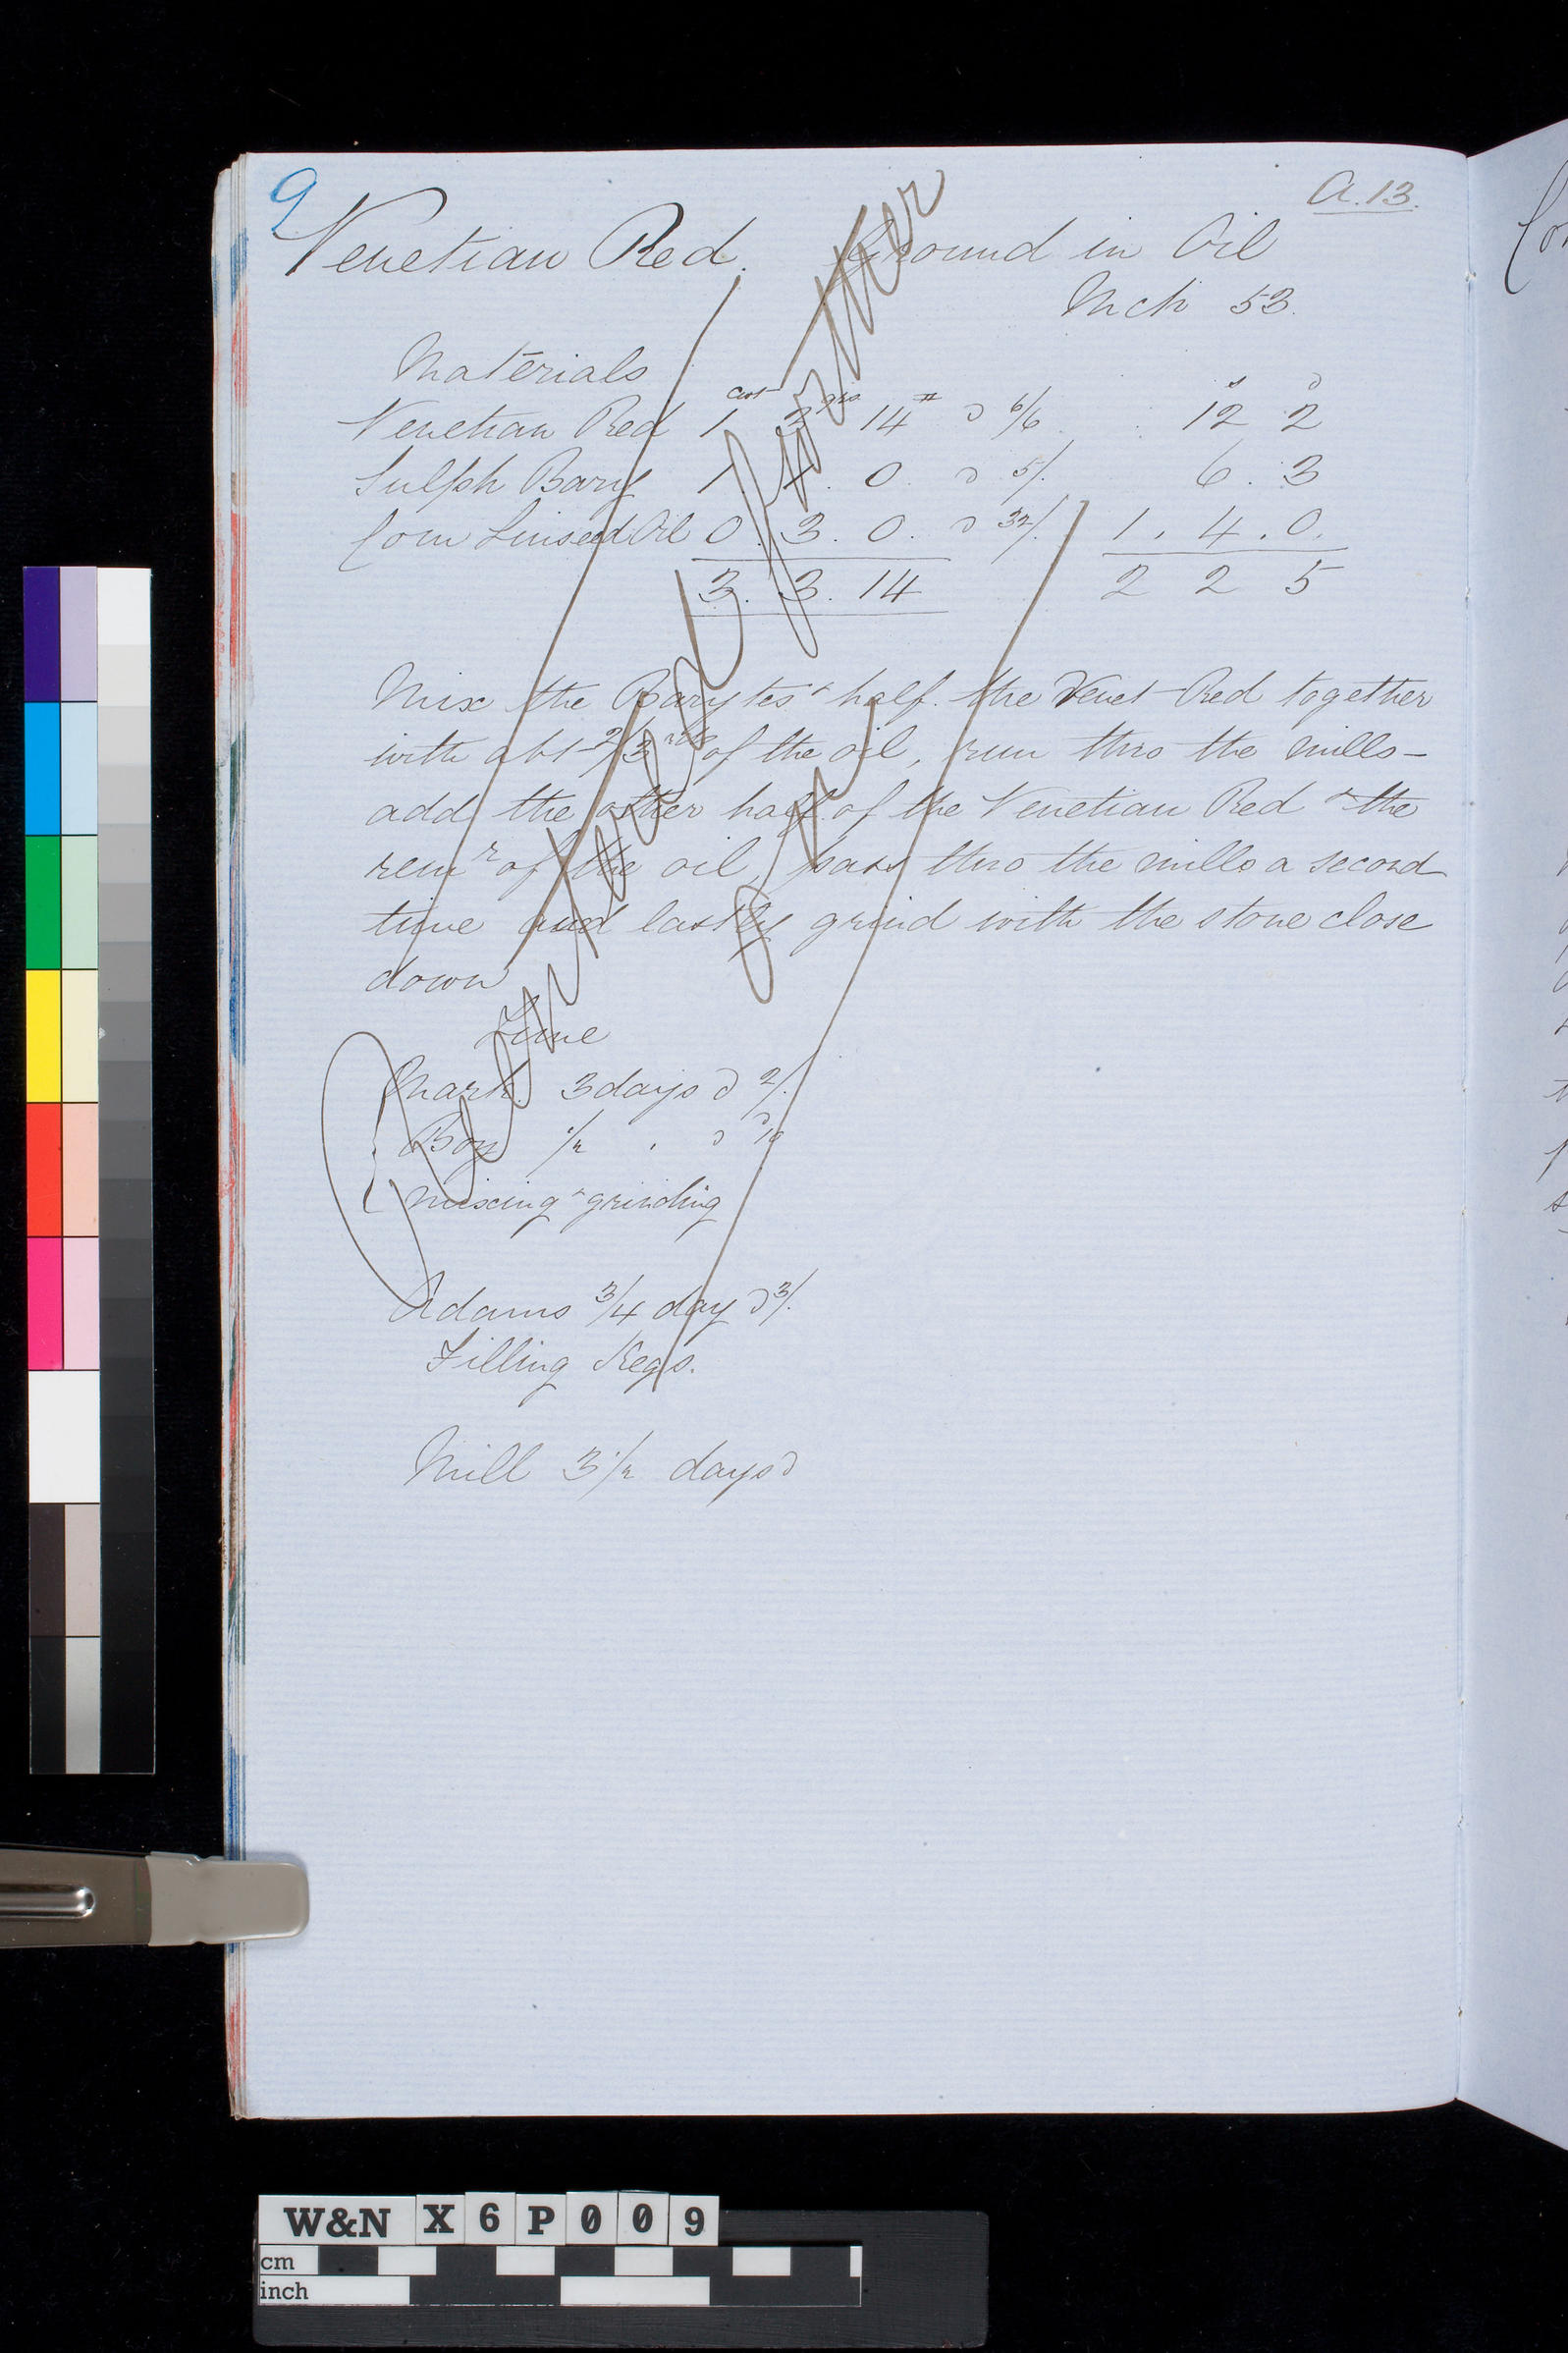 9
A.13.
Venetian Red. Ground in Oil
Mch 53.
Materials
cwt qrs # s d
Venetian Red 1 3 14 @ 6/6 12 2
Sulph Bary 1 1. 0 @ 5/. 6. 3
Com Linseed Oil 0. 3. 0. @ 32/. 1. 4. 0.
3. 3. 14 2 2 5
Mix the Barytes & half the Venet Red together
with abt 2/3rds of the oil, run thro the mills-
add the other half of the Venetian Red & the
remr of the oil, pass thro the mills a second
time and lastly grind with the stone close
down
Time
Mark 3 days @ 2/.
Boy 1/2 . @ 10d
mixing & grinding
Adams 3/4 day @ 3/.
Filling Kegs.
Mill 3 1/2 days @
further
W&N X6P009
cm
inch